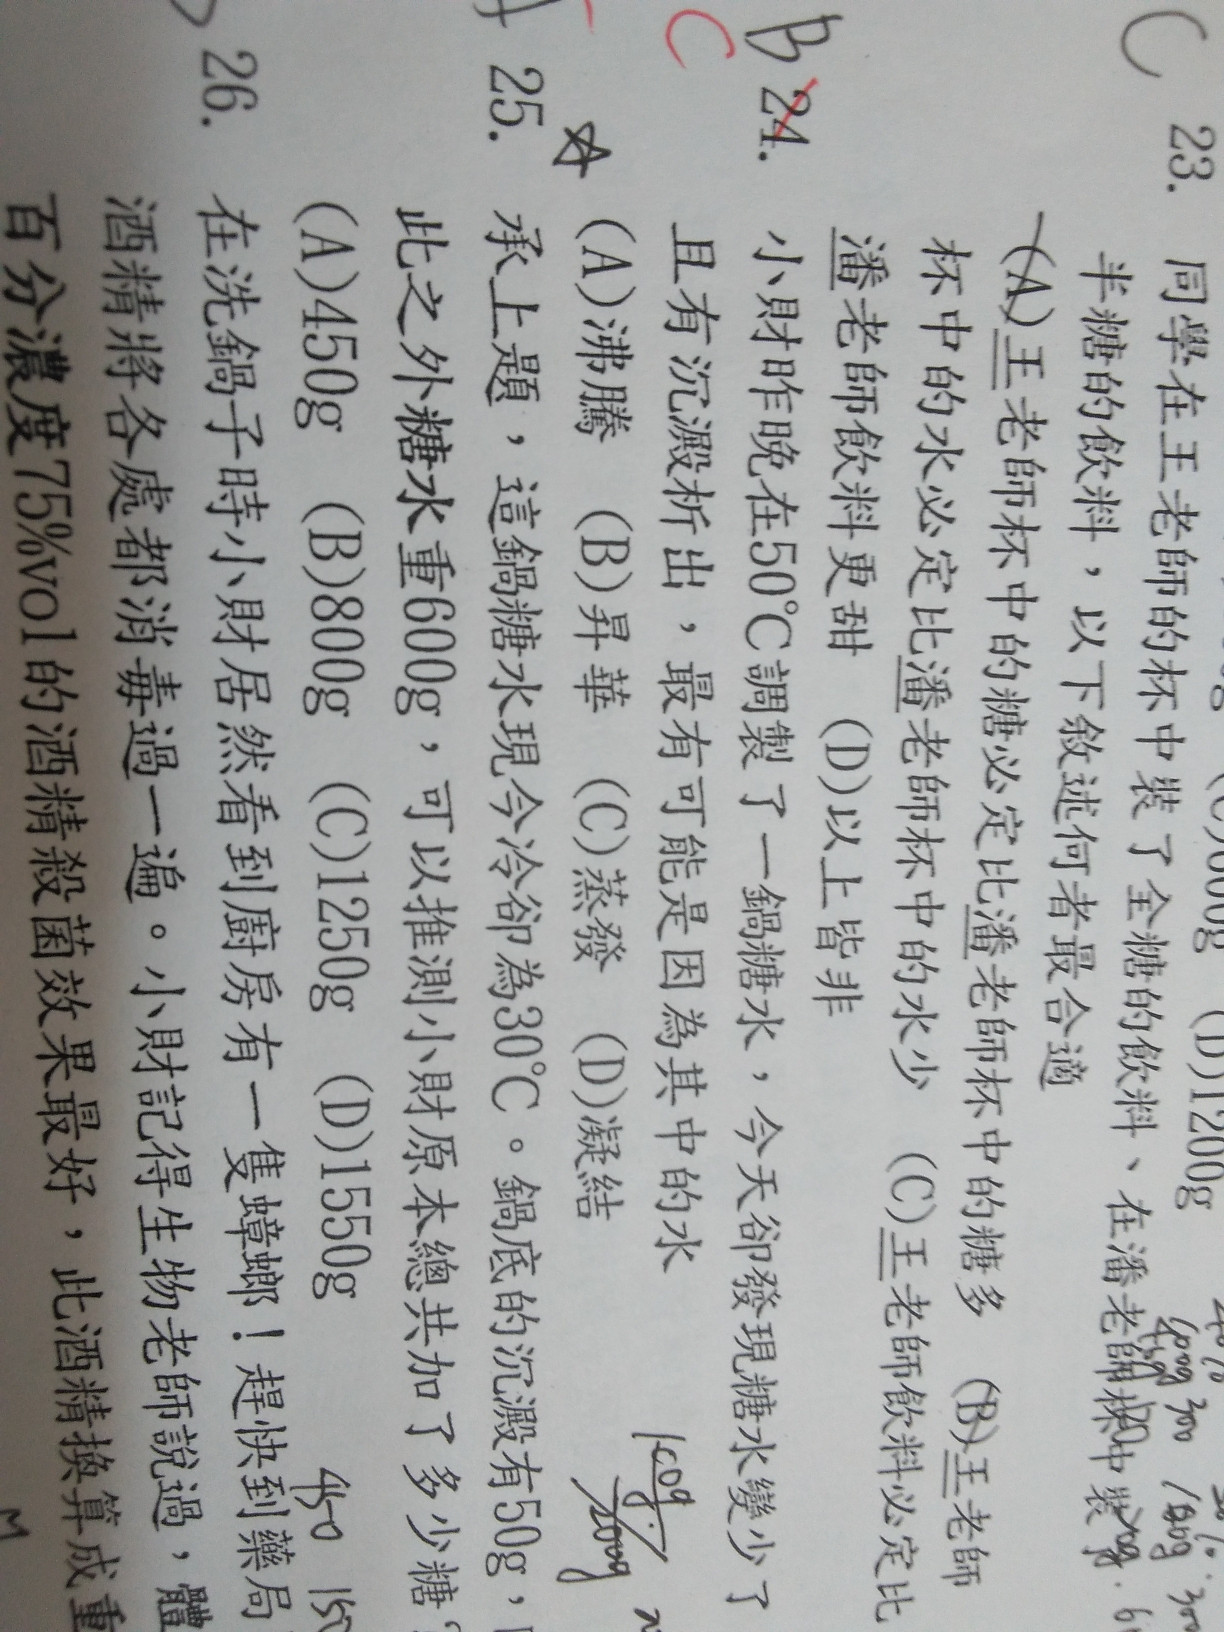 (D)1200g
C 23. 同學在王老師的杯中裝了全糖的飲料、在潘老師杯中裝
半糖的飲料，以下敘述何者最合適
(A)王老師杯中的糖必定比潘老師杯中的糖多 (B)王老師
杯中的水必定比潘老師杯中的水少 (C)王老師飲料必定比
潘老師飲料更甜 (D)以上皆非
B 24. 小財昨晚在50℃調製了一鍋糖水，今天卻發現糖水變少了
C
且有沉澱析出，最有可能是因為其中的水
(A)沸騰 (B)昇華 (C)蒸發 (D)凝結
25. 承上題，這鍋糖水現今冷卻為30℃。鍋底的沉澱有50g，
此之外糖水重600g，可以推測小財原本總共加了多少糖
(A)450g (B)800g (C)1250g (D)1550g
26. 在洗鍋子時小財居然看到廚房有一隻蟑螂！趕快到藥局
酒精將各處都消毒過一遍。小財記得生物老師說過，體
百分濃度75%vol的酒精殺菌效果最好，此酒精換算成重